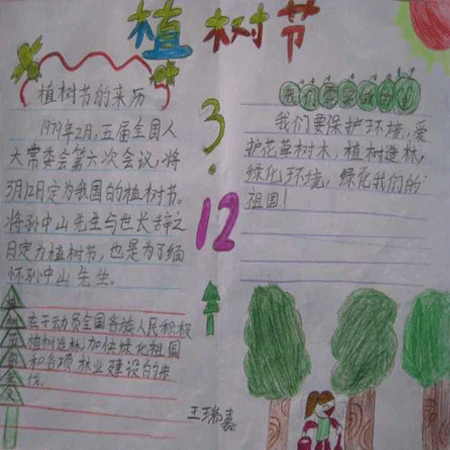 植树节
植树节的来历
1979年2月,五届全国人
大常委会第六次会议,将
3月12日定为我国的植树节。
将孙中山先生与世长辞之
日定为植树节,也是为了缅
怀孙中山先生。
在于动员全国各族人民积极
植树造林,加快绿化祖国
和各项林业建设的步
伐。
3.12
我们
我们要保护环境,爱
护花草树木,植树造林,
绿化环境,绿化我们的
祖国!
王瑞嘉